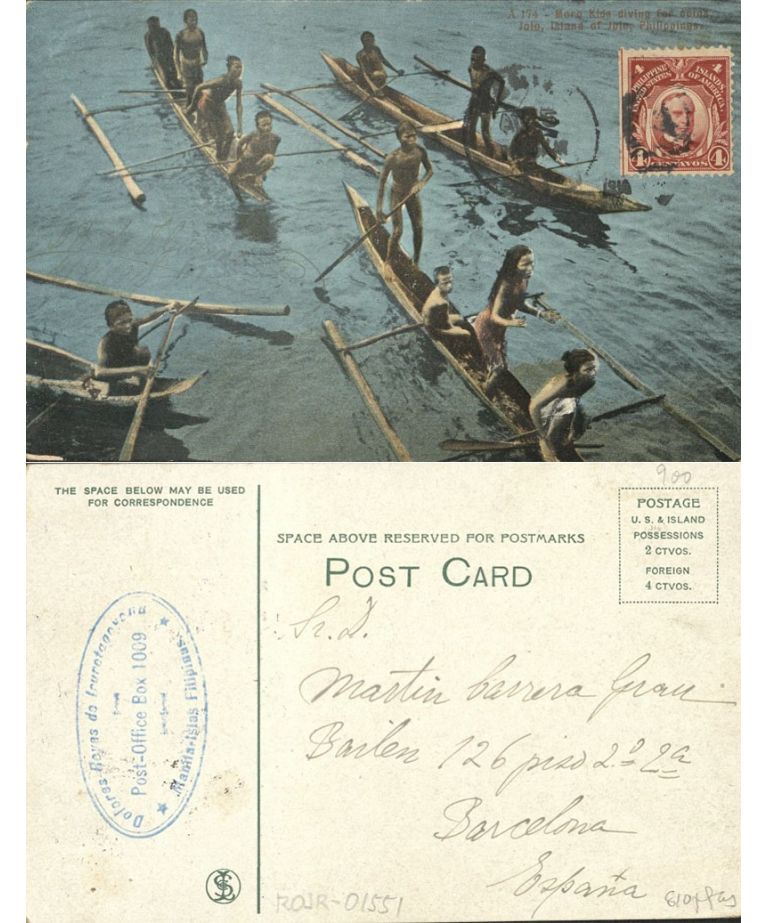 A 174 - Moro Kids diving for coins,
Jolo, Island of Jolo, Philippines.
4 4
PHILIPPINE ISLANDS
UNITED STATES OF AMERICA
4 CENTAVOS 4
900
THE SPACE BELOW MAY BE USED
FOR CORRESPONDENCE
POSTAGE
U. S. & ISLAND
POSSESSIONS
2 CTVOS.
FOREIGN
4 CTVOS.
SPACE ABOVE RESERVED FOR POSTMARKS
POST CARD
Sr. D.
Martin Carrera Grau
Bailen 126 piso 2º 2ª
Barcelona
España
Dolores Reyes de
Post-Office Box 1009
Manila-Islas Filipinas
ROJR-01551